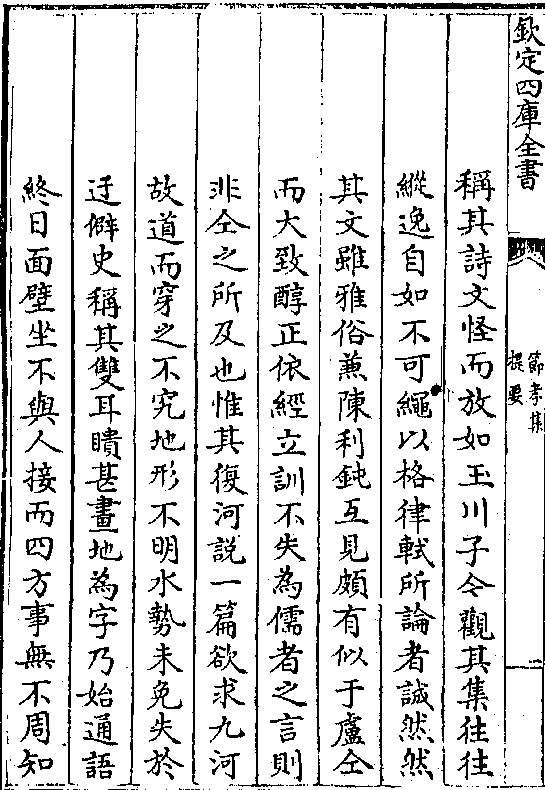 欽定四庫全書
節孝集
提要
二
稱其詩文怪而放如玉川子今觀其集往往
縱逸自如不可繩以格律軾所論者誠然然
其文雖雅俗兼陳利鈍互見頗有似于盧仝
而大致醇正依經立訓不失為儒者之言則
非仝之所及也惟其復河説一篇欲求九河
故道而穿之不究地形不明水勢未免失於
迂僻史稱其雙耳聵甚畫地為字乃始通語
終日面壁坐不與人接而四方事無不周知